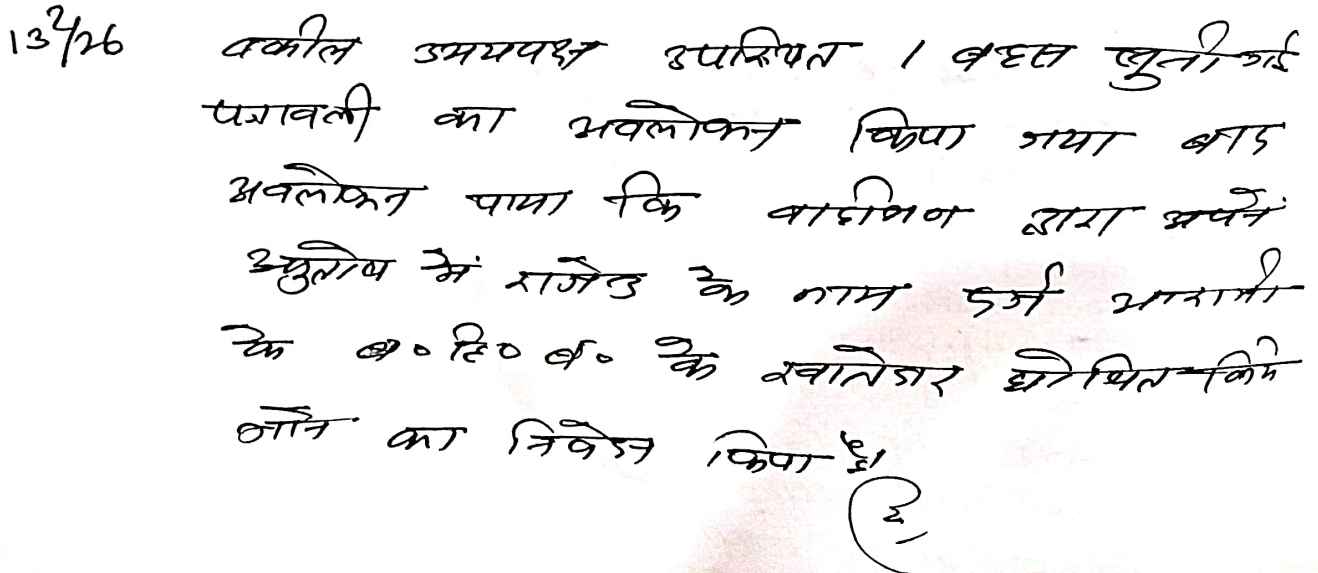 13/2/26 वकील उभयपक्ष उपस्थित । बहस सुनी गई
पत्रावली का अवलोकन किया गया बाद
अवलोकन पाया कि वादीगण द्वारा अपने
अनुतोष में राजेन्द्र के नाम दर्ज आराजी
के ब० हि० ब० के खातेदार घोषित किये
जाने का निवेदन किया है।